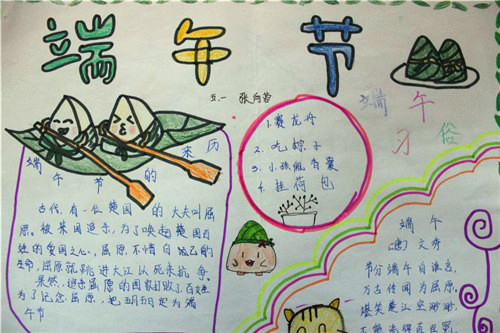 端午节
五.一 张向
端午
习俗
1.赛龙舟
2.吃粽子
3.小孩佩香囊
4.挂荷包
端午节的来历
古代,有一位楚国的大夫叫屈
原。被某国追杀,为了唤起楚国百
姓的爱国之心,屈原不惜自己的
生命,屈原就跳进大江以死来抗争。
果然,追杀屈原的国家打败了,百姓
为了纪念屈原,把五月五日定为端
午节
端午
(唐)文秀
节分端午自谁言,
万古传闻为屈原,
堪笑楚江空渺渺,
不能洗得直臣冤